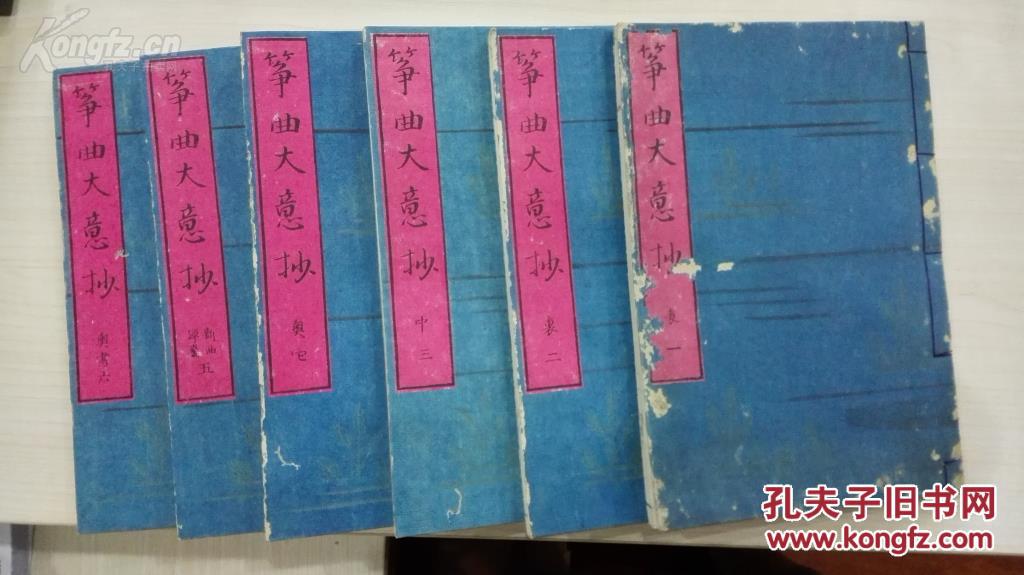 Kongfz.cn
箏曲大意抄
表 一
箏曲大意抄
裏 二
箏曲大意抄
中 三
箏曲大意抄
奥
箏曲大意抄
新曲
五
箏曲大意抄
奥書六
孔夫子旧书网
www.kongfz.com